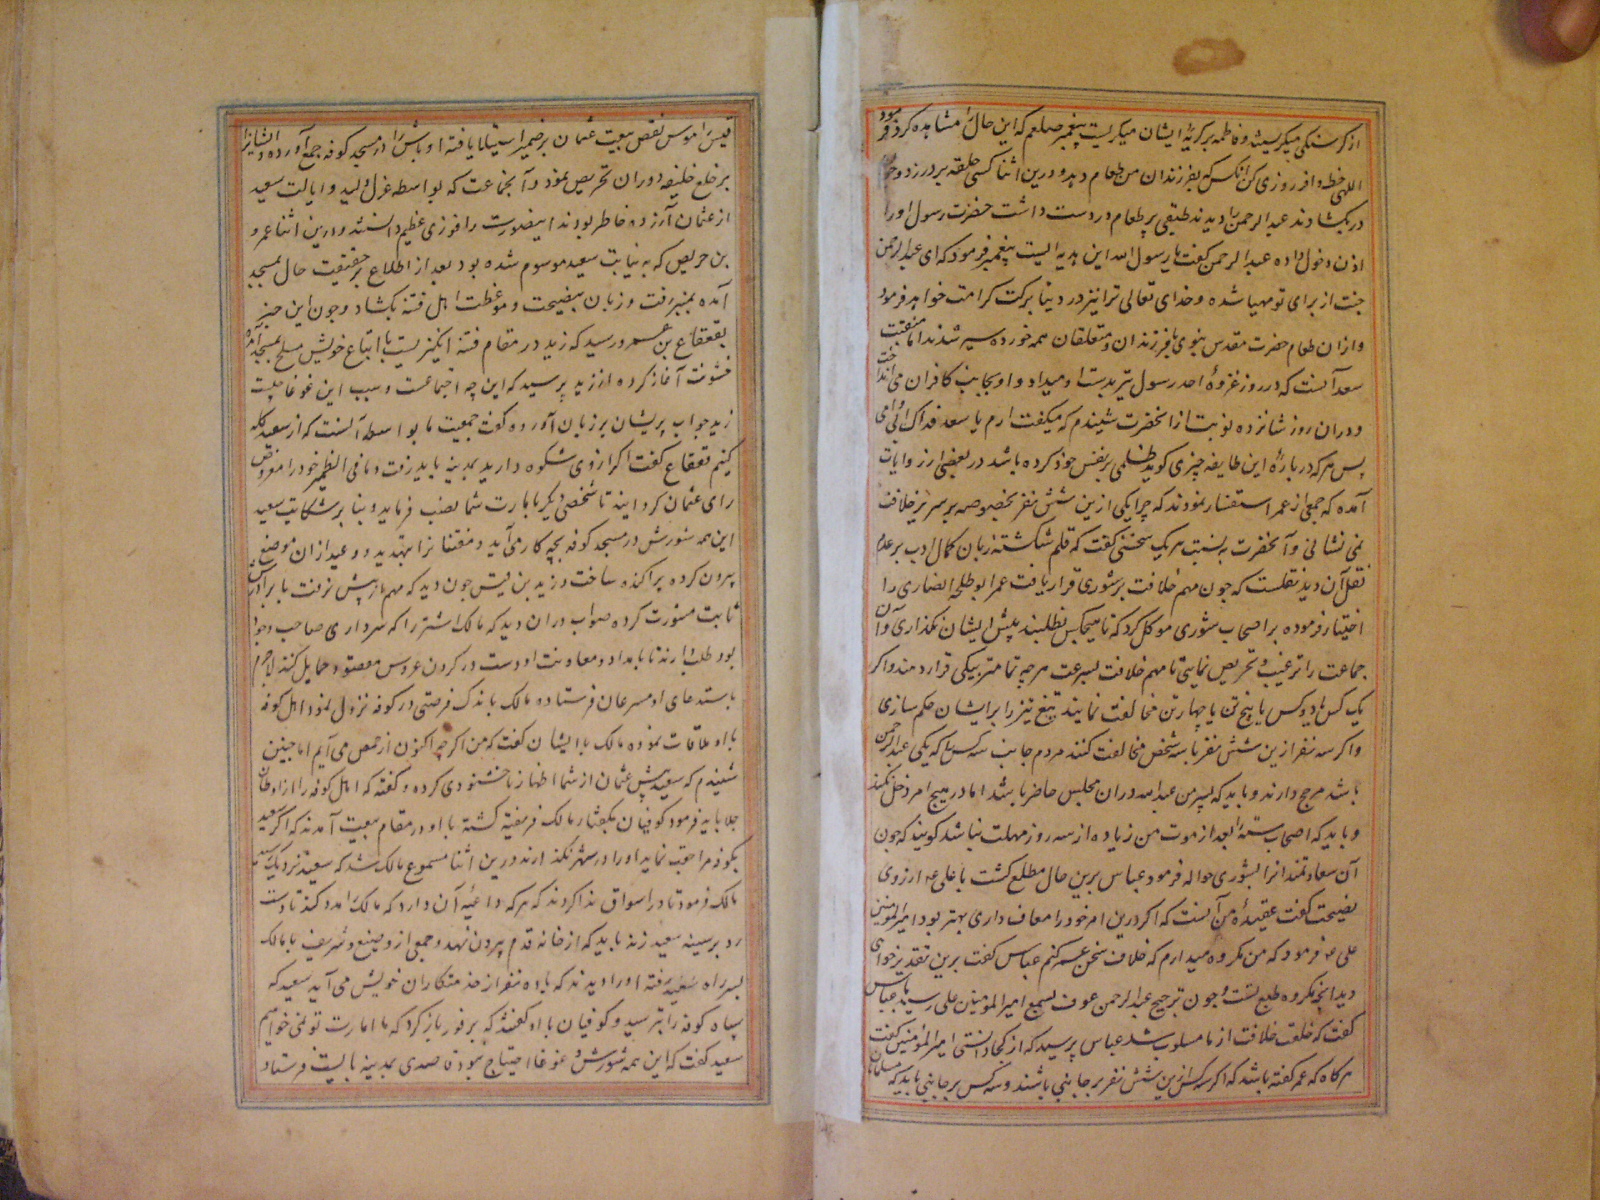 از گرسنگی میگریستند و فاطمه بر گریهٔ ایشان میگریست پیغمبر صلعم که این حال را مشاهده کرد فرمود
اللهم خدا روزی کن آنکس که بفرزندان من طعام دهد و درین اثنا کسی حلقه بر در زد و چون
در بگشادند عبد الرحمن را دیدند طبقی پر طعام در دست داشت حضرت رسول او را
اذن دخول داده عبد الرحمن گفت یا رسول الله این هدیه ایست پیغمبر فرمود که ای عبد الرحمن
جنت از برای تو مهیا شده و خدای تعالی ترا نیز در دنیا برکت کرامت خواهد فرمود
و ازان طعام حضرت مقدس نبوی با فرزندان و متعلقان همه خورده سیر شدند اما منقبت
سعد آنست که در روز غزوهٔ احد رسول تیر بدست او میداد و او بجانب کافران می انداخت
و دران روز شانزده نوبت از آنحضرت شنیدم که میگفت ارم یا سعد فداک ابی و امی
پس هر که در بارهٔ این طایفه چیزی گوید ظلمی بر نفس خود کرده باشد در بعضی از روایات
آمده که جمعی از عمر استفسار نمودند که چرا یکی ازین شش نفر بخصوصه بر سریر خلافت
نمی نشانی و آنحضرت به نسبت هر یک سخنی گفت که قلم شکسته زبان کمال ادب بر عدم
نقل آن دید نقلست که چون مهم خلافت بر شوری قرار یافت عمر ابو طلحه انصاری را
اختیار فرموده بر اصحاب شوری موکل گرد که تا هیچکس نطلبند پیش ایشان نگذاری و آن
جماعت را ترغیب و تحریص نمایی تا مهم خلافت بسرعت هر چه تمامتر بیکی قرار دهند و اگر
یک کس با دو کس یا پنج تن یا چهار تن مخالفت نمایند تیغ تیز را بر ایشان حکم سازی
و اگر سه نفر ازین شش نفر با سه شخص مخالفت کنند مردم جانب سه کس را که یکی عبد الرحمن
باشد مرجح دارند و باید که پسر من عبد الله دران مجلس حاضر باشد اما در هیچ امر دخل نکند
و باید که اصحاب سته را بعد از موت من زیاده از سه روز مهلت نباشد گویند که چون
آن سعادتمند انرا بشوری حواله فرمود عباس برین حال مطلع گشت با علی ع از روی
نصیحت گفت عقیدهٔ من آنست که اگر درین امر خود را معاف داری بهتر بود امیر المؤمنین
علی ع فرمود که من مکروه میدارم که خلاف سخن عمر کنم عباس گفت برین تقدیر خواهی
دید آنچه مکروه طبع تست و چون ترجیح عبد الرحمن عوف بسمع امیر المؤمنین علی رسید با عباس
گفت که خلعت خلافت از ما مسلوب شد عباس پرسید که از کجا دانستی امیر المؤمنین گفت
هرگاه که عمر گفته باشد که اگر سه کس ازین شش نفر بر جانبی باشند و سه کس بر جانبی باید که مسلمانان
قیس اموس نقض بیعت عثمان بر ضمیر استیلا یافته اوباش را در مسجد کوفه جمع آورده و ایشانرا
بر خلع خلیفه دوران تحریص نمود و آن جماعت که بواسطه عزل ولید و ایالت سعید
از عثمان آزرده خاطر بودند این ضلارت را فوزی عظیم دانستند و درین اثنا عمرو
بن حریص که به نیابت سعید موسوم شده بود بعد از اطلاع بر حقیقت حال بمسجد
آمده بمنبر رفت و زبان بنصیحت و موعظت اهل فتنه بگشاد و چون این خبر
بقعقاع بن عمرو رسید که زید در مقام فتنه انگیزیست با اتباع خویش مسلح بمسجد آمده
خشونت آغاز کرده از زید پرسید که این چه اجتماعست و سبب این غوغا چیست
زید جواب پریشان بر زبان آورده گفت جمعیت ما بواسطه آنست که از سعید گله
کنیم قعقاع گفت اگر از وی شکوه دارید بمدینه باید رفت و ما فی الضمیر خود را معروض
رای عثمان گردانید تا شخصی دیگر بامارت شما نصب فرماید و بنا بر شکایت سعید
این همه شورش در مسجد کوفه بچه کار می آید و متفقانرا بتهدید و وعید ازان موضع
بیرون کرده پراکنده ساخت و زید بن قیس چون دید که مهم از پیش نرفت با برادرش
ثابت مشورت کرده صواب دران دید که مالک اشتر را که سرداری صاحب وجود
بود طلب دارند تا بامداد و معاونت او دست در گردن عروس مقصود حمایل کنند لاجرم
باستدعای او مسرعان فرستاده مالک باندک فرصتی در کوفه نزول نمود اهل کوفه
با او ملاقات نموده مالک با ایشان گفت که من اگرچه اکنون از حمص می آیم اما چنین
شنیدم که سعید پیش عثمان از شما اظهار ناخشنودی کرده و گفته که اهل کوفه را از اوطان
جلا باید فرمود کوفیان بگفتار مالک فریفته گشته با او در مقام بیعت آمدند که اگر سعید
بکوفه مراجعت نماید او را در شهر نگذارند درین اثنا مسموع مالک شد که سعید نزدیک رسید
مالک فرمود تا در اسواق ندا کردند که هر که داعیهٔ آن دارد که مالک را مدد کند تا دست
رد بر سینه سعید زند باید که از خانه قدم بیرون نهد و جمعی از وضیع و شریف با مالک
بسر راه سعید رفته او را دیدند که با ده نفر از خدمتکاران خویش می آید سعید که
سپاه کوفه را بدید بترسید و کوفیان با او گفتند که بر فور باز گرد که ما امارت تو نمی خواهیم
سعید گفت که این همه شورش و غوغا احتیاج نبود قاصدی بمدینه بایست فرستاد